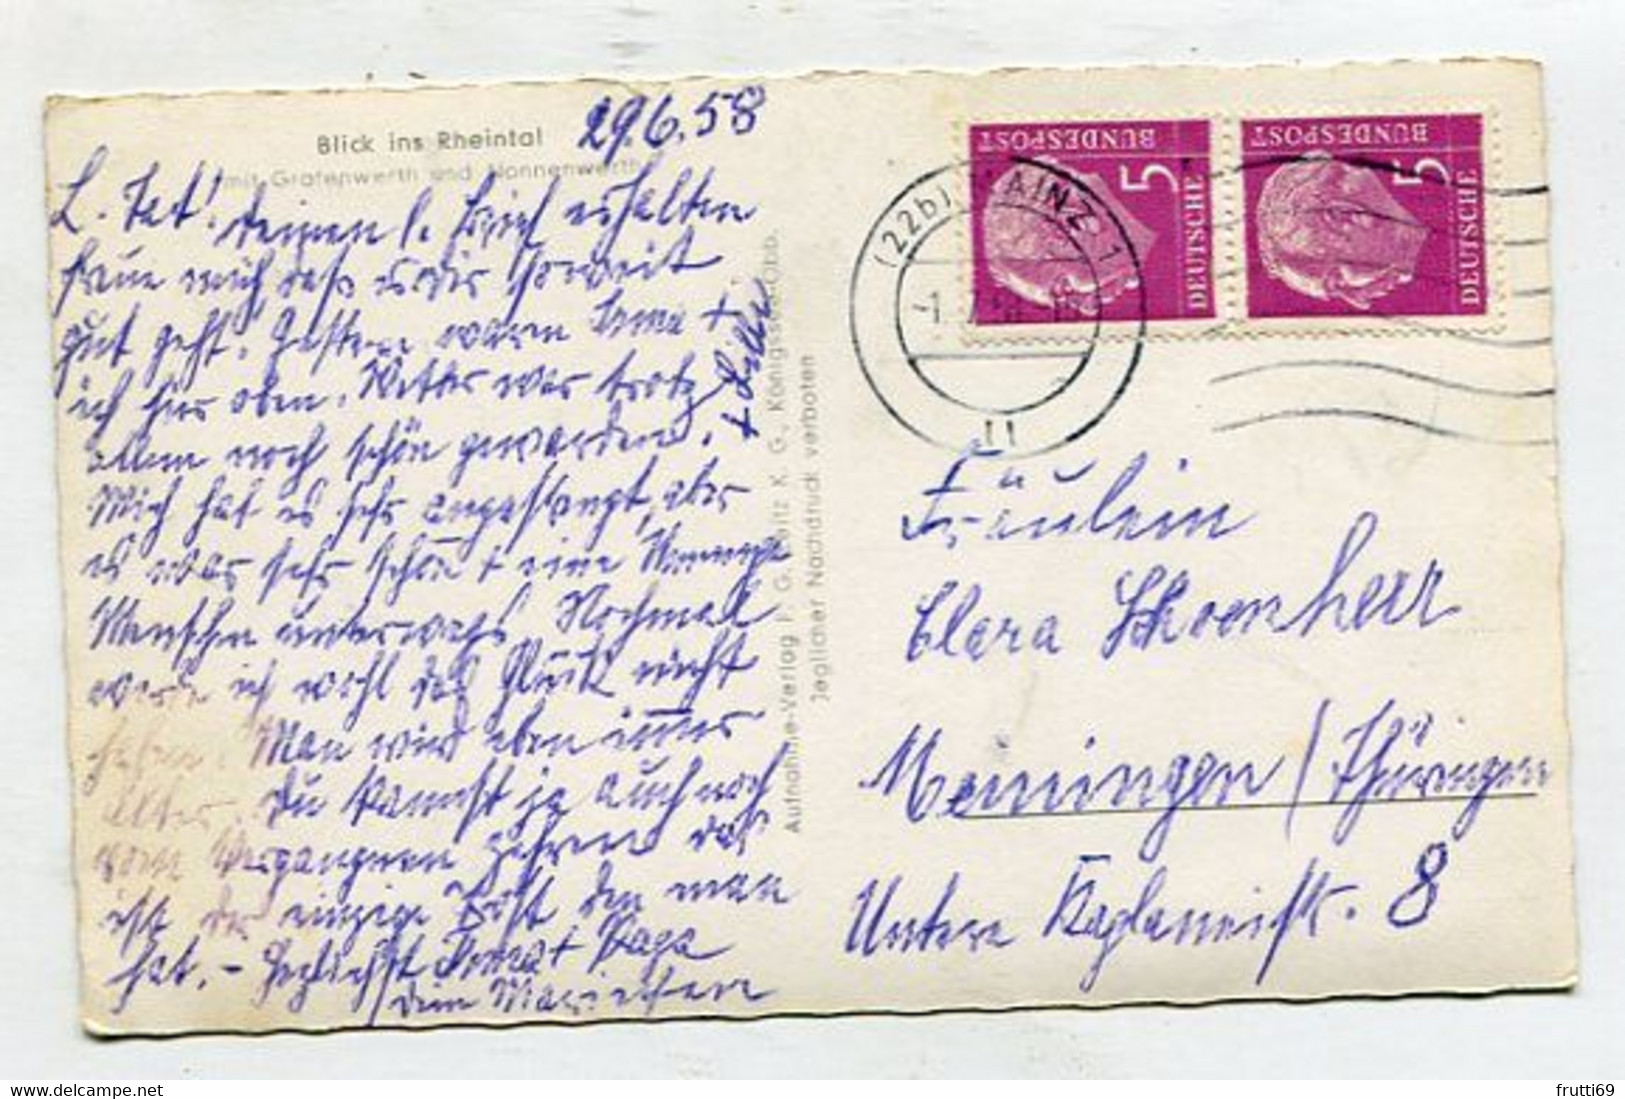 Blick ins Rheintal
mit Grafenwerth und Nonnenwerth
29.6.58
L. Deinen l. Brief erhalten
freue mich daß es dir soweit
gut geht. Gestern waren Irma +
ich hier oben. Wetter war trotz
allem noch schön geworden.
Mich hat es sehr angestrengt, aber
es war sehr schön + eine Menge
Menschen unterwegs. Nochmal
werde ich wohl das Glück nicht
haben. Man wird eben immer
älter. Du kannst ja auch noch
vom Vergangenen zehren das
ist der einzige Trost den man
hat. - Herzlichst Irma + Papa
dein Mariechen
Aufnahme-Verlag K. G., Königssee-Obb.
Jeglicher Nachdruck verboten
BUNDESPOST
5
DEUTSCHE
BUNDESPOST
5
DEUTSCHE
(22b) MAINZ 1
Fräulein
Clara Schoenherr
Meiningen / Thüringen
Untere 8
frutti69
www.delcampe.net